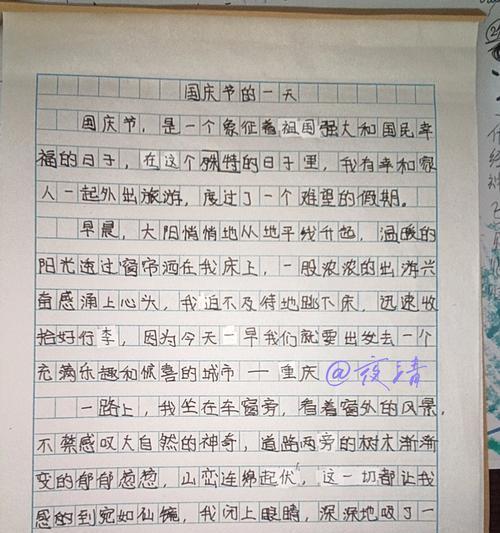 国庆节的一天
国庆节，是一个象征着祖国强大和国民幸
福的日子，在这个殊特的日子里，我有幸和家
人一起外出旅游，度过了一个难望的假期。
早晨，大阳悄悄地从地平线升起，温暖的
阳光透过窗帘洒在我床上，一股浓浓的出游兴
奋感涌上心头，我迫不及待地跳下床，迅速收
拾好行李，因为今天一早我们就要出发去一个
充满乐趣和惊喜的城市一重庆 @夜清
一路上，我坐在车窗旁，看着窗外的风景，
不禁感叹大自然的神奇，道路两旁的树木渐渐
变的郁郁葱葱，山峦连绵起伏，这一切都让我
感的到宛如仙镜，我闭上眼睛，深深地吸了一